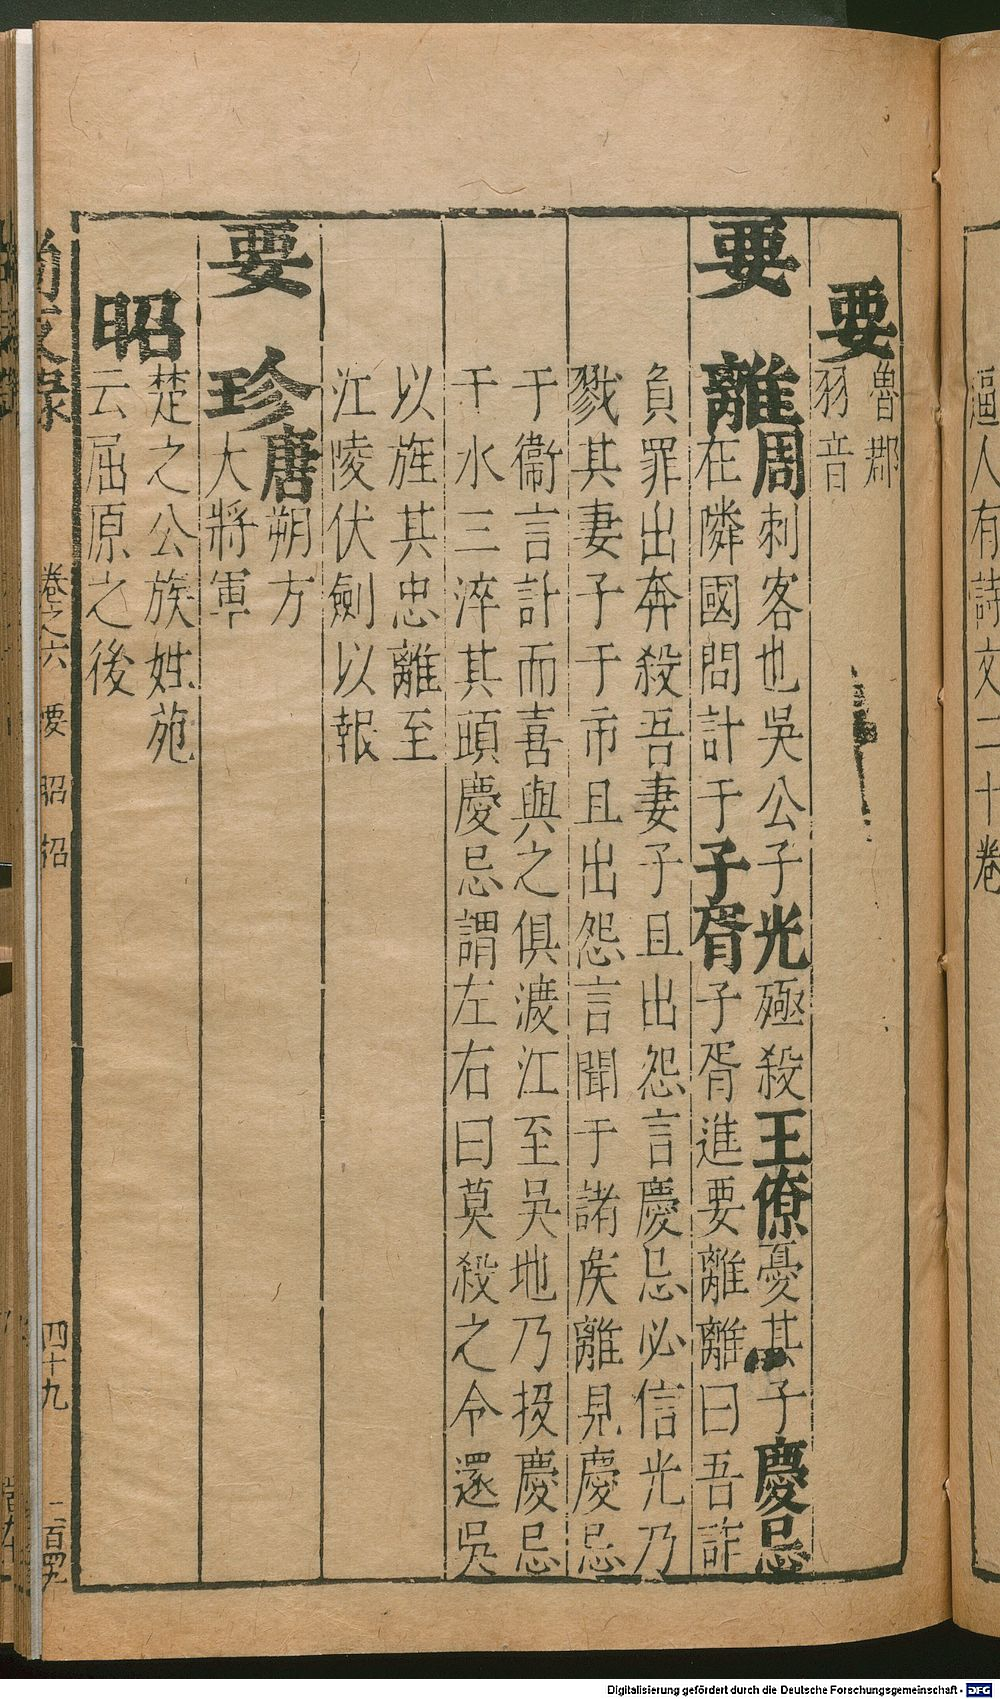 逼人有詩文二十卷
要
魯郡
羽音
要離
周刺客也吳公子光殛殺王僚憂其子慶忌
在隣國問計于子胥子胥進要離離曰吾詐
負罪出奔殺吾妻子且出怨言慶忌必信光乃
戮其妻子于市且出怨言聞于諸矦離見慶忌
于衞言計而喜與之俱渡江至吳地乃投慶忌
于水三淬其頭慶忌謂左右曰莫殺之令還吳
以旌其忠離至
江陵伏劍以報
要珍
唐朔方
大將軍
昭
楚之公族姓苑
云屈原之後
卷之六 要 昭 招 四十九 二百四九
Digitalisierung gefördert durch die Deutsche Forschungsgemeinschaft - DFG